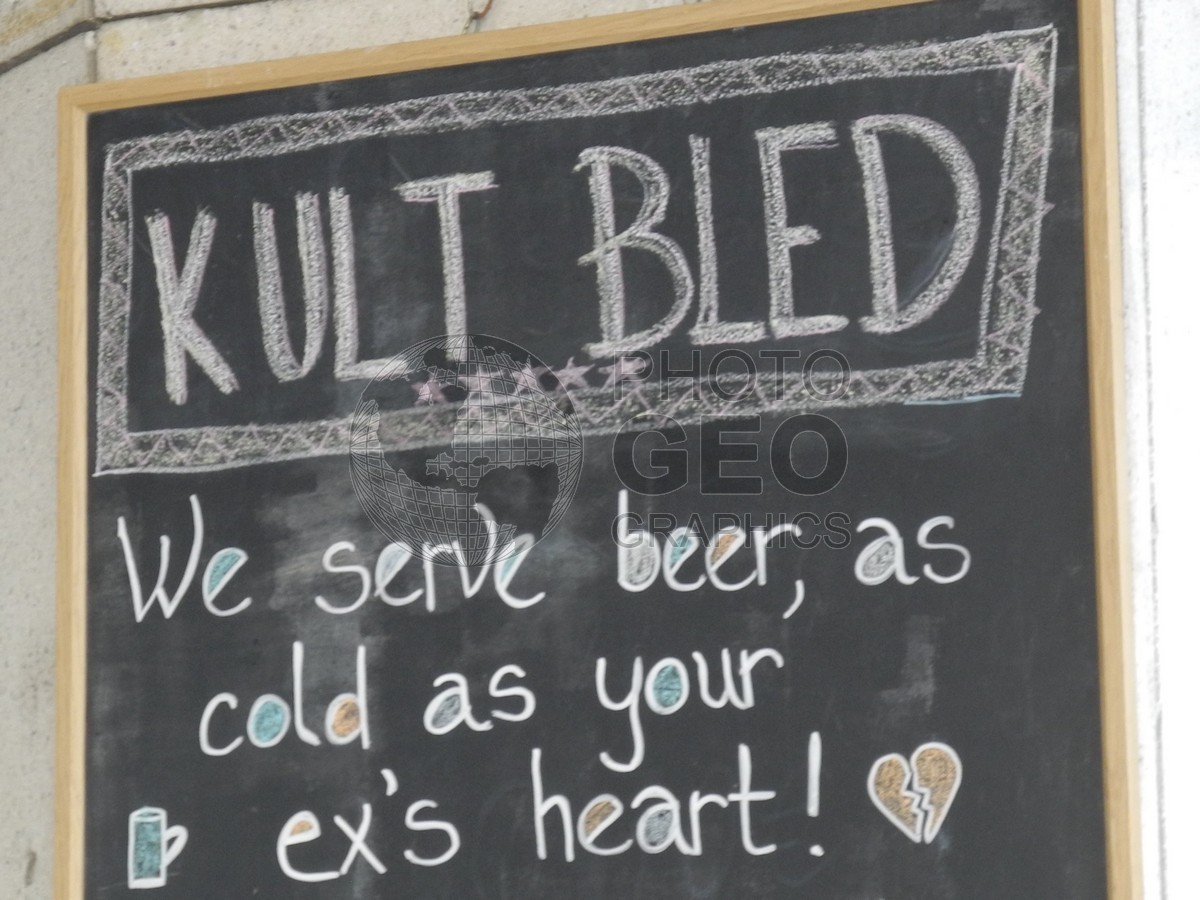 KULT BLED
PHOTO
GEO
GRAPHICS
We serve beer, as
cold as your
ex's heart!